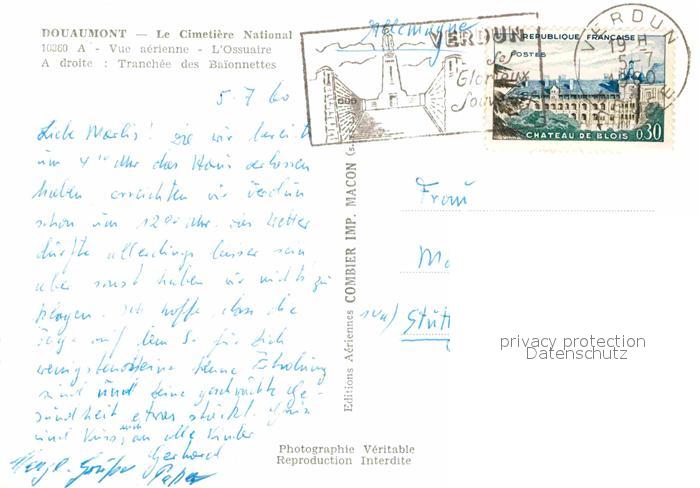 DOUAUMONT — Le Cimetière National
10360 A - Vue aérienne - L'Ossuaire
A droite : Tranchée des Baïonnettes
Allemagne
VERDUN
Ses
Glorieux
Souvenirs
VERDUN
19 H
5-7
REPUBLIQUE FRANÇAISE
POSTES
CHATEAU DE BLOIS 0,30
5.7.60
Liebe Marlis! Die wir bereits
um 4 Uhr das Haus verlassen
haben erreichten wir Verdun
schon um 12 Uhr. Das Wetter
dürfte allerdings besser sein
aber sonst haben wir nichts zu
klagen. Ich hoffe, dass die
Tage auf dem für Dich
wenigstens eine kleine Erholung
sind und Deine geschwächte Ge-
sundheit etwas stärkt. Gruss
und Kuss, auch an alle Kinder
Gerhard
Herzl. Grüße
Editions Aériennes COMBIER IMP. MACON
Frau
Stutt
privacy protection
Datenschutz
Photographie Véritable
Reproduction Interdite